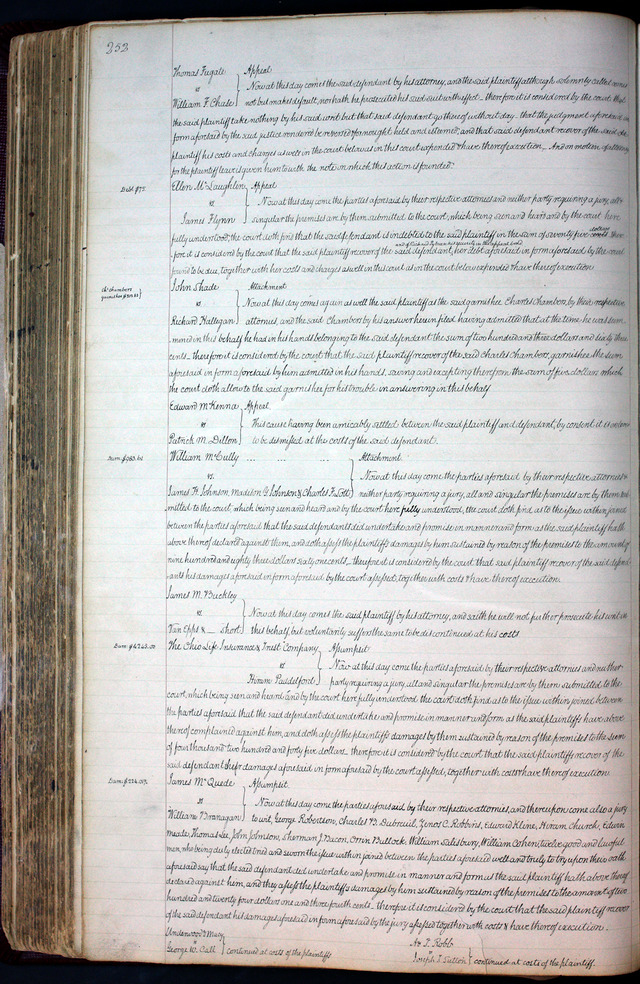 252
Thomas Fugate } Appeal
vs } Now at this day comes the said defendant by his attorney, and the said plaintiff although solemnly called comes
William F. Chase } not but makes default, nor hath he prosecuted his said suit with effect. therefore it is considered by the court that
the said plaintiff take nothing by his said writ but that said defendant go thereof without day. that the judgment aforesaid in
form aforesaid by the said justice rendered be reversed & for nought held and esteemed, and that said defendant recover of the said
plaintiff his costs and charges as well in the court below as in this court expended & have thereof execution. And on motion of attorney
for the plaintiff leave is given him to with the note on which this action is founded.
Debt $75. Ellen McLaughlin } Appeal
vs } Now at this day come the parties aforesaid by their respective attornies and neither party requiring a jury, all &
James Flynn } singular the premises are by them submitted to the court, which being seen and heard and by the court here
fully understood, the court doth find that the said defendant is indebted to the said plaintiff in the sum of seventy five dollars there-
fore it is considered by the court that the said plaintiff recover of the said defendant, her debt aforesaid in form aforesaid by the court
found to be due, together with her costs and charges as well in this court as in the court below expended & have thereof execution
Chs Chambers
garnishee John Shade } Attachment
vs } Now at this day comes again as well the said plaintiff as the said garnishee Charles Chambers, by their respective
Richard Hallegan } attornies, and the said Chambers by his answer herein filed having admitted that at the time he was sum-
moned in this behalf he had in his hands belonging to the said defendant the sum of two hundred and three dollars and sixty three
cents. therefore it is considered by the court that the said plaintiff recover of the said Charles Chambers, garnishee the sum
aforesaid in form aforesaid by him admitted in his hands, saving and excepting therefrom the sum of five dollars which
the court doth allow to the said garnishee for his trouble in answering in this behalf
Edward McKenna } Appeal
vs } This cause having been amicably settled between the said plaintiff and defendant, by consent it is ordered
Patrick M. Dillon } to be dismissed at the costs of the said defendant.
Dam. $983.61 William McCully ... ... ... } Attachment
vs. } Now at this day come the parties aforesaid by their respective attornies &
James H. Johnson, Madison Y. Johnson & Charles F. Lott } neither party requiring a jury, all and singular the premises are by them sub-
mitted to the court, which being seen and heard and by the court here fully understood, the court doth find as to the issue within joined
between the parties aforesaid that the said defendants did undertake and promise in manner and form as the said plaintiff hath
above thereof declared against them, and doth assess the plaintiff's damages by him sustained by reason of the premises to the amount of
nine hundred and eighty three dollars sixty one cents. therefore it is considered by the court that said plaintiff recover of the said defend-
ants his damages aforesaid in form aforesaid by the court assessed, together with costs & have thereof execution.
James M. Buckley }
vs } Now at this day comes the said plaintiff by his attorney, and saith he will not further prosecute his writ in
Van Epps & __ Short } this behalf but voluntarily suffers the same to be discontinued at his costs.
Dam: $4245.00 The Ohio Life Insurance & Trust Company } Assumpsit
vs } Now at this day come the parties aforesaid by their respective attornies and neither
Hiram Paddelford } party requiring a jury, all and singular the premises are by them submitted to the
court, which being seen and heard, and by the court here fully understood the court doth find as to the issue within joined between
the parties aforesaid that the said defendant did undertake and promise in manner and form as the said plaintiffs have above
thereof complained against him, and doth assess the plaintiffs damages by them sustained by reason of the premises to the sum
of four thousand two hundred and forty five dollars. therefore it is considered by the court that the said plaintiffs recover of the
said defendant their damages aforesaid in form aforesaid by the court assessed, together with costs & have thereof execution.
James McQuede } Assumpsit.
vs } Now at this day come the parties aforesaid by their respective attornies, and thereupon come also a jury
William Branagan } to wit, George Robertson, Charles B. Dubreuil, Zenos C. Robbins, Edward Kline, Hiram Church, Edwin
Meade, Thomas Lee, John Johnson, Sherman J. Bacon, Orrin Bullock, William Salesbury, William Cohen, twelve good and lawful
men, who being duly elected tried and sworn the issue within joined between the parties aforesaid well and truly to try upon their oath
aforesaid say that the said defendant did undertake and promise in manner and form as the said plaintiff hath above thereof
declared against him, and they assess the plaintiff's damages by him sustained by reason of the premises to the amount of two
hundred and twenty four dollars one and three fourth cents. therefore it is considered by the court that the said plaintiff recover
of the said defendant his damages aforesaid in form aforesaid by the jury assessed together with costs & have thereof execution.
Underwood & May }
vs }
George W. Call } continued at costs of the plaintiffs
}
Joseph J. Sutton } continued at costs of the plaintiff.